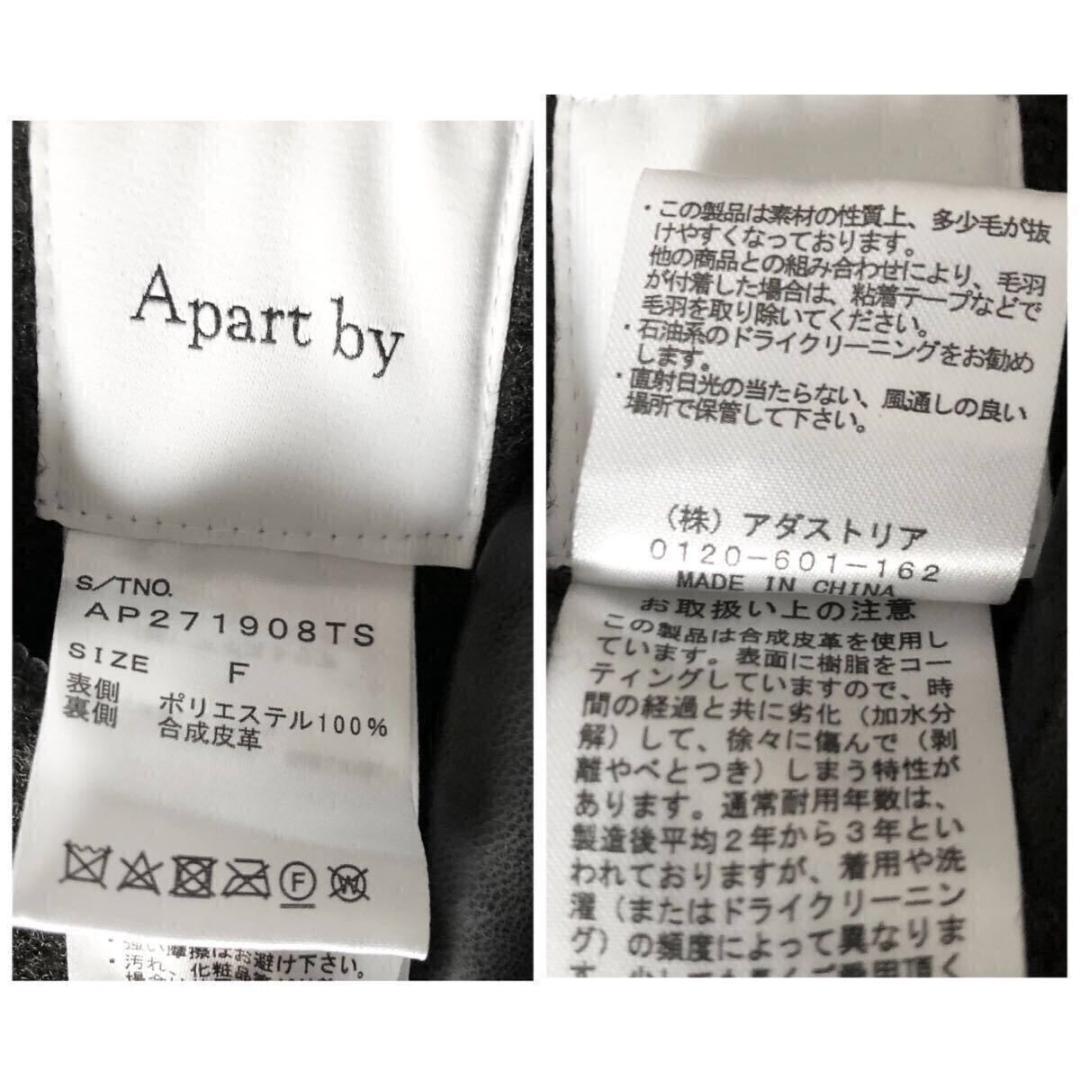 Apart by
S/TNO.
AP271908TS
SIZE F
表側 ポリエステル100%
裏側 合成皮革
F W
汚れ、化粧品
・この製品は素材の性質上、多少毛が抜
けやすくなっております。
他の商品との組み合わせにより、毛羽
が付着した場合は、粘着テープなどで
毛羽を取り除いてください。
・石油系のドライクリーニングをお勧め
します。
・直射日光の当たらない、風通しの良い
場所で保管して下さい。
(株)アダストリア
0120-601-162
MADE IN CHINA
お取扱い上の注意
この製品は合成皮革を使用し
ています。表面に樹脂をコー
ティングしていますので、時
間の経過と共に劣化(加水分
解)して、徐々に傷んで(剥
離やべとつき)しまう特性が
あります。通常耐用年数は、
製造後平均2年から3年とい
われておりますが、着用や洗
濯(またはドライクリーニン
グ)の頻度によって異なりま